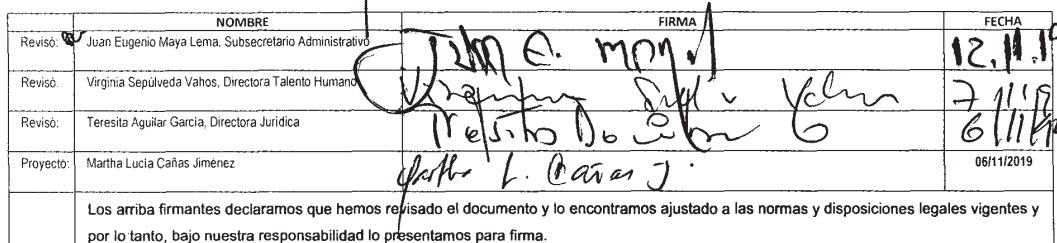 NOMBRE FIRMA FECHA
Revisó: Juan Eugenio Maya Lema, Subsecretario Administrativo 12.11.19
Revisó. Virginia Sepúlveda Vahos, Directora Talento Humano 7/11/19
Revisó: Teresita Aguilar García, Directora Jurídica 6/11/19
Proyectó: Martha Lucía Cañas Jiménez Martha L. Cañas J. 06/11/2019
Los arriba firmantes declaramos que hemos revisado el documento y lo encontramos ajustado a las normas y disposiciones legales vigentes y
por lo tanto, bajo nuestra responsabilidad lo presentamos para firma.